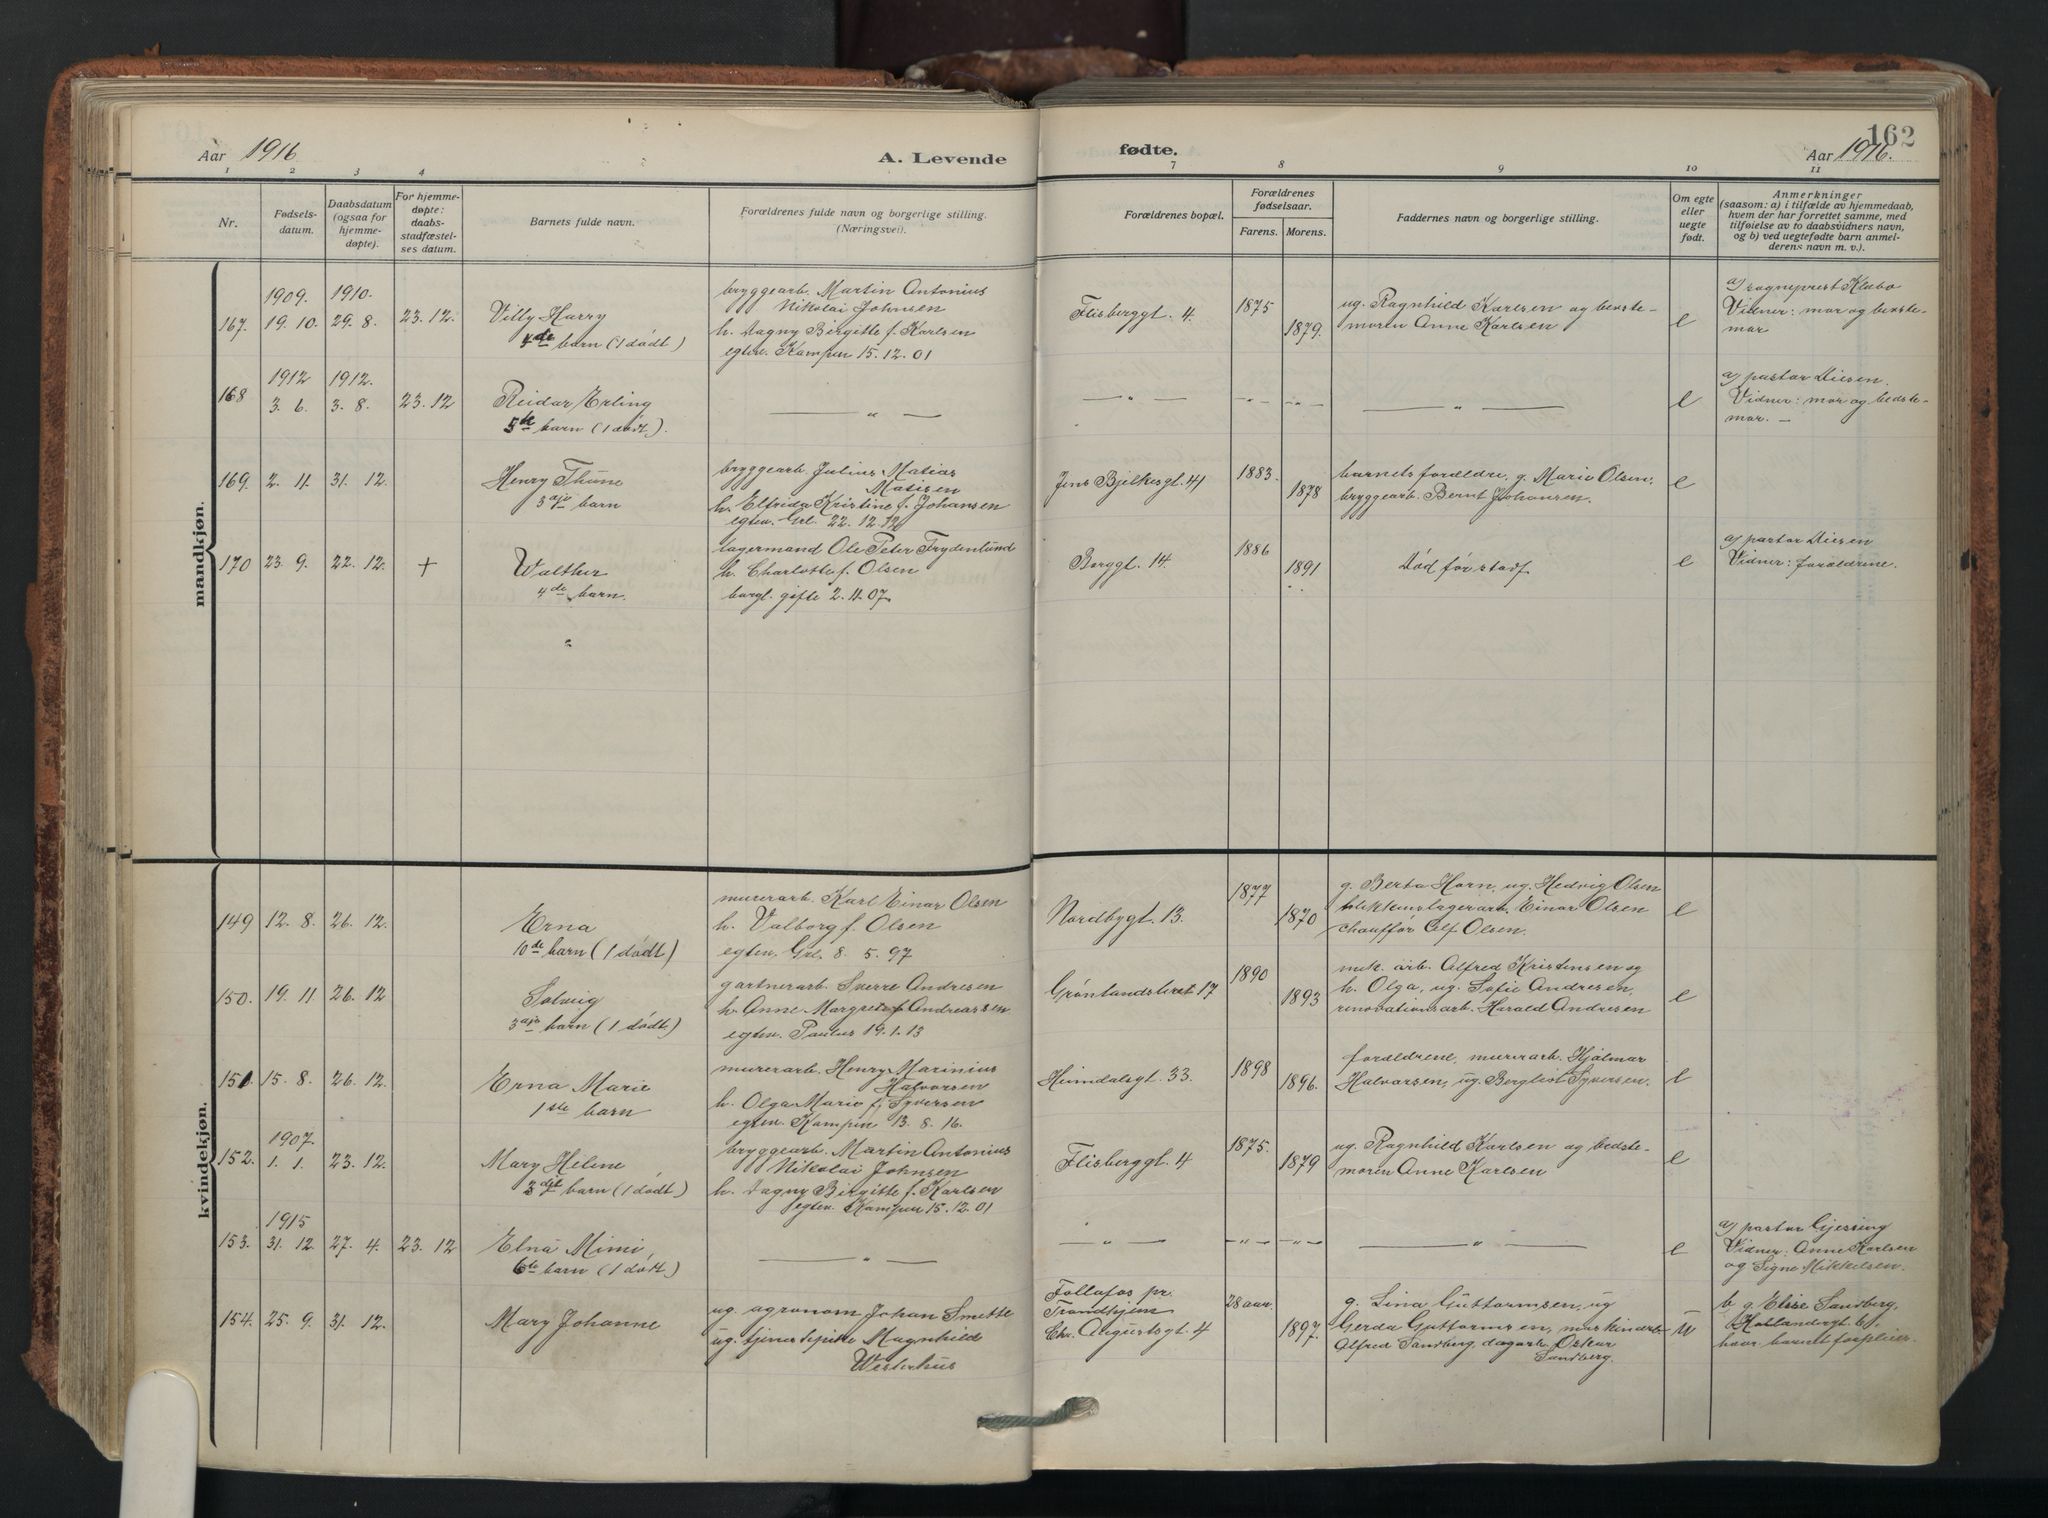 Aar 1916
A. Levende
fødte.
162
Aar 1916.
1 2 3 4
7 8 9 10 11
Nr.
Fødsels-
datum.
Daabsdatum
(ogsaa for
hjemme-
døpte).
For hjemme-
døpte:
daabs-
stadfæstel-
ses datum.
Barnets fulde navn.
Forældrenes fulde navn og borgerlige stilling.
(Næringsvei).
Forældrenes bopæl.
Forældrenes
fødselsaar.
Farens. Morens.
Faddernes navn og borgerlige stilling.
Om egte
eller
uegte
født.
Anmerkninger
(saasom: a) i tilfælde av hjemmedaab,
hvem der har forrettet samme, med
tilføielse av to daabsvidners navn,
og b) ved uegtefødte barn anmel-
derens navn m. v.).
mandkjøn.
167.
1909.
19. 10.
1910.
29. 8.
23. 12.
Villy Harry
4de barn (1 dødt)
bryggearb. Martin Antonius
Nikolai Johnsen
h. Dagny Birgitte f. Karlsen
egtev. Kampen 15. 12. 01
Flisberggt. 4.
1875
1879.
ug. Ragnhild Karlsen og bedste-
moren Anne Karlsen
e
a) sogneprest Klubo
Vidner: mor og bedste-
mor
168
1912
3. 6.
1912.
3. 8.
23. 12
Reidar Erling
5de barn (1 dødt).
— " —
— " —
— " —
— " —
— " —
e
a) pastor Diesen.
Vidner: mor og bedste-
mor. —
169.
2. 11.
31. 12.
Henry Thune
3dje barn
bryggearb. Julius Matias
Matisen
h. Elfrida Kristine f. Johansen
egtev. Grl. 22. 12. 12
Jens Bjelkesgt. 41
1883.
1878
barnets forældre, g. Marie Olsen,
bryggearb. Bernt Johansen.
e
170
23. 9.
22. 12.
+
Walther
4de barn.
"
lagermand Ole Peter Frydenlund
h. Charlotte f. Olsen
borgl. gifte 2. 11. 07.
Berggt. 14.
1886
1891
Død før stadf.
e
a) pastor Diesen
Vidner: forældrene.
kvindekjøn.
149
12. 8.
26. 12.
Erna
10de barn (1 dødt)
murerarb. Karl Einar Olsen
h. Valborg f. Olsen
egtev. Grl. 8. 5. 97
Nordbygt. 13.
1877
1870
g. Berta Horn, ug. Hedvig Olsen
blikkenslagerarb. Einar Olsen
chauffør Alf Olsen.
e
150.
19. 11.
26. 12
Solveig
3dje barn (1 dødt)
gartnerarb. Sverre Andresen
h. Anne Margrete f. Andreassen
egtev. Paulus 19. 1. 13
Grønlandsleret 17
1890
1893
mek. arb. Alfred Kristensen og
h. Olga, ug. Sofie Andresen,
renovationsarb. Harald Andresen
e
151.
15. 8.
26. 12.
Erna Marie
1ste barn
murerarb. Henry Marinius
Halvorsen
h. Olga Marie f. Syversen
egtev. Kampen 13. 8. 16.
Heimdalsgt. 33.
1898
1896.
forældrene, murerarb. Hjalmar
Halvorsen, ug. Bergliot Syversen.
e
152.
1907.
1. 1.
23. 12.
Mary Helene
3dje barn (1 dødt)
bryggearb. Martin Antonius
Nikolai Johnsen
h. Dagny Birgitte f. Karlsen
egtev. Kampen 15. 12. 01
Flisberggt. 4
1875.
1879
ug. Ragnhild Karlsen og bedste-
moren Anne Karlsen
e
153.
1915
31. 12.
27. 4.
23. 12
Elna Mimi,
6te barn (1 dødt)
— " —
— " —
— " —
— " —
— " —
e
a) pastor Gjessing
Vidner: Anne Karlsen
og Signe Mikkelsen.
154.
25. 9.
31. 12.
Mary Johanne
ug. agronom Johan Smette
ug. tjenestepike Magnhild
Westerhus
Follafos pr.
Trondhjem
Chr. Augustsgt. 4
28 aar.
1897.
g. Lina Guttormsen, ug
Gerda Guttormsen, maskinarb.
Alfred Sandberg, dagarb. Oskar
Sandberg.
u
b g. Elise Sandberg,
Hollandergt. 6,
hvor barnet forpleies.